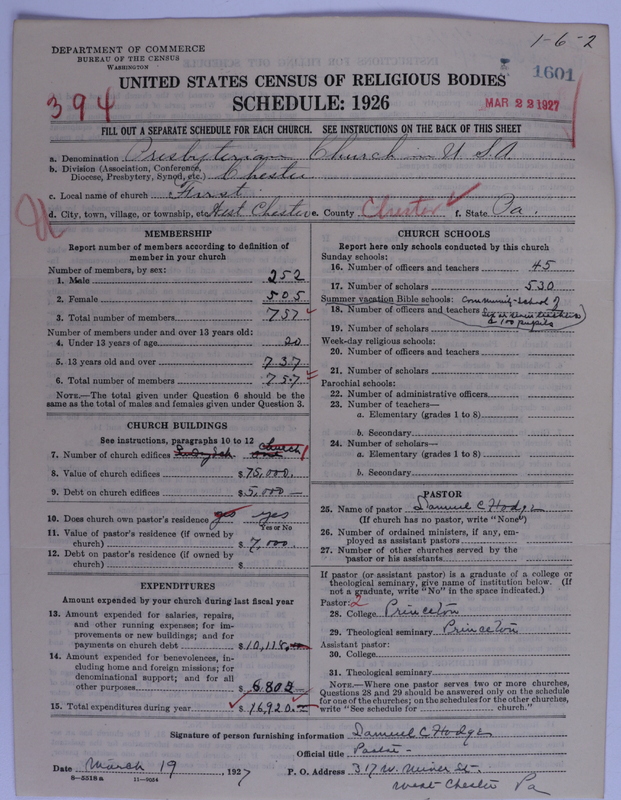 1-6-2
DEPARTMENT OF COMMERCE
BUREAU OF THE CENSUS
WASHINGTON
1601
UNITED STATES CENSUS OF RELIGIOUS BODIES
394
SCHEDULE: 1926
MAR 22 1927
FILL OUT A SEPARATE SCHEDULE FOR EACH CHURCH. SEE INSTRUCTIONS ON THE BACK OF THIS SHEET
a. Denomination Presbyterian Church in U S A
b. Division (Association, Conference, Diocese, Presbytery, Synod, etc.) Chester
c. Local name of church First
d. City, town, village, or township, etc. West Chester e. County Chester f. State Pa.
MEMBERSHIP
Report number of members according to definition of
member in your church
Number of members, by sex:
1. Male 252
2. Female 505
3. Total number of members 757
Number of members under and over 13 years old:
4. Under 13 years of age 20
5. 13 years old and over 737
6. Total number of members 757
NOTE.—The total given under Question 6 should be
same as the total of males and females given under Question 3.
CHURCH BUILDINGS
See instructions, paragraphs 10 to 12
7. Number of church edifices one church 1
8. Value of church edifices $ 75,000.
9. Debt on church edifices $ 5,000 —
10. Does church own pastor's residence yes yes
Yes or No
11. Value of pastor's residence (if owned by
church) $ 7,000
12. Debt on pastor's residence (if owned by
church) $
EXPENDITURES
Amount expended by your church during last fiscal year
13. Amount expended for salaries, repairs,
and other running expense; for im-
provements or new buildings; and for
payments on church debt $ 10,118.
14. Amount expended for benevolences, in-
cluding home and foreign missions; for
denominational support; and for all
other purposes $ 6802
15. Total expenditures during year $ 16,920.
CHURCH SCHOOLS
Report here only schools conducted by this church
Sunday schools:
16. Number of officers and teachers 45
17. Number of scholars 530
Summer vacation Bible schools: Community School of
18. Number of officers and teachers six or seven teachers
& 100 pupils
19. Number of scholars
Week-day religious schools:
20. Number of officers and teachers
21. Number of scholars
Parochial schools:
22. Number of administrative officers
23. Number of teachers—
a. Elementary (grades 1 to 8)
b. Secondary
24. Number of scholars—
a. Elementary (grades 1 to 8)
b. Secondary
PASTOR
25. Name of pastor Samuel C Hodge
(If church has no pastor, write "None")
26. Number of ordained ministers, if any, em-
ployed as assistant pastors
27. Number of other churches served by the
pastor or his assistants
If pastor (or assistant pastor) is a graduate of a college or
theological seminary, give name of institution below. (If
not a graduate, write "No" in the space indicated.)
Pastor: 2
28. College Princeton
29. Theological seminary Princeton
Assistant pastor:
30. College
31. Theological seminary
NOTE.—Where one pastor serves two or more churches,
Questions 28 and 29 should be answered only on the schedule
for one of the churches; on the schedules for the other churches,
write "See schedule for church."
Signature of person furnishing information Samuel C. Hodge
Official title Pastor
Date March 19, 1927 P. O. Address 317 W. Miner St.
8—5518a 11—9024 West Chester Pa